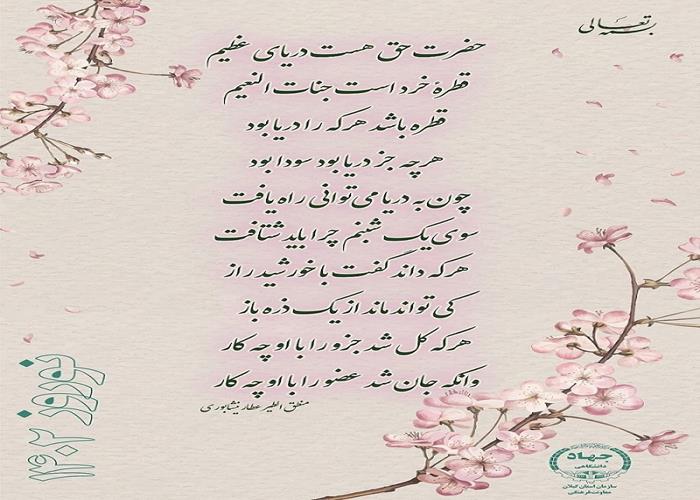 بسمه تعالی
حضرت حق هست دریای عظیم
قطرهٔ خرد است جنات النعیم
قطره باشد هر که را دریا بود
هر چه جز دریا بود سودا بود
چون به دریا می توانی راه یافت
سوی یک شبنم چرا باید شتافت
هر که داند گفت با خورشید راز
کی تواند ماند از یک ذره باز
هر که کل شد جزو را با او چه کار
وانکه جان شد عضو را با او چه کار
منطق الطیر عطار نیشابوری
نوروز ۱۴۰۲
جهاد
دانشگاهی
سازمان استان گیلان
معاونت فرهنگی